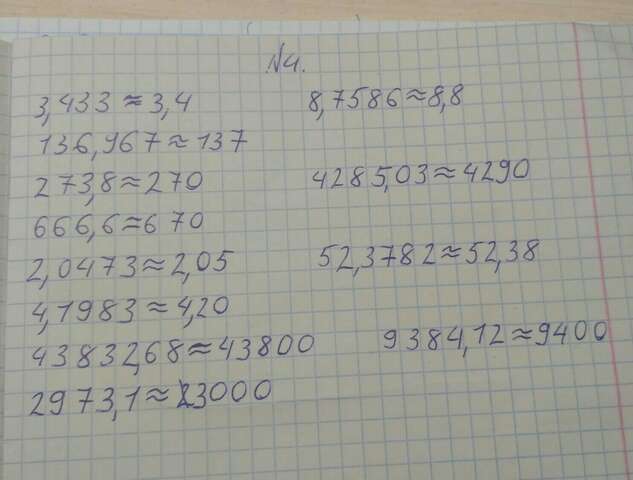 №4.
3,433 ≈ 3,4
8,7586 ≈ 8,8
136,967 ≈ 137
273,8 ≈ 270
4285,03 ≈ 4290
666,6 ≈ 670
2,0473 ≈ 2,05
52,3782 ≈ 52,38
4,1983 ≈ 4,20
43832,68 ≈ 43800
9384,12 ≈ 9400
2973,1 ≈ 3000